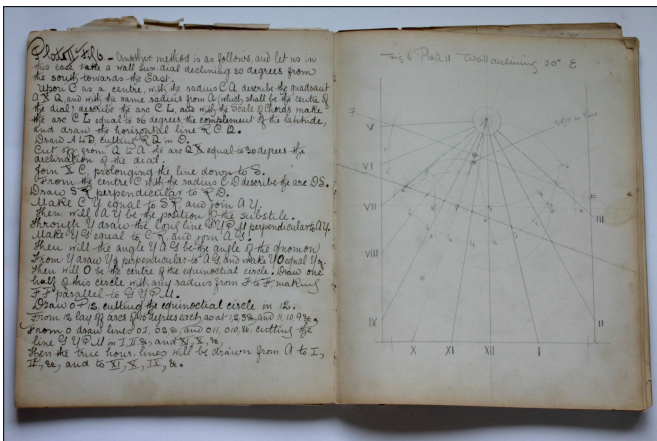 Plate II Fig 6. - Another method is as follows, and let us in
this case take a wall sun dial declining 30 degrees from
the south towards the East.
Upon C as a centre, with the radius CA describe the quadrant
A X Q, and with the same radius from A (which shall be the centre of
the dial) describe the arc C L, and with the scale of chords make
the arc C L equal to 36 degrees the complement of the latitude,
and draw the horizontal line R C Q.
Draw A L D, cutting R Q in D.
Cut off from Q to X the arc Q X equal to 30 degrees the
declination of the dial.
Join X C, prolonging the line down to S.
From the centre C with the radius C D describe the arc D S.
Draw S R perpendicular to R D.
Make C Y equal to S R and join A Y.
Then will A Y be the position of the substile.
Through Y draw the long line G Y P M perpendicular to A Y.
Make Y G equal to C R, and join A G.
Then will the angle Y A G be the angle of the gnomon
From Y draw Y g perpendicular to A G, and make Y O equal Y g.
Then will O be the centre of the equinoctial circle. Draw one
half of this circle with any radius from F to F, making
F F parallel to G Y P M.
Draw O P 12, cutting the equinoctial circle in 12.
From 12 lay off arcs of 15 degrees each, as at 1, 2, 3 &c, and 11, 10, 9 &c,
From O draw lines O 1, O 2 &c, and O 11, O 10, &c. cutting the
line G Y P M in I, II &c, and XI, X, &c,
Then the true hour lines will be drawn from A to I,
II, &c, and to XI, X, IX, &c.
Fig 6 Plate 11 Wall declining 30° E
V
VI
VII
VIII
IX
X
XI
XII
I
II
III